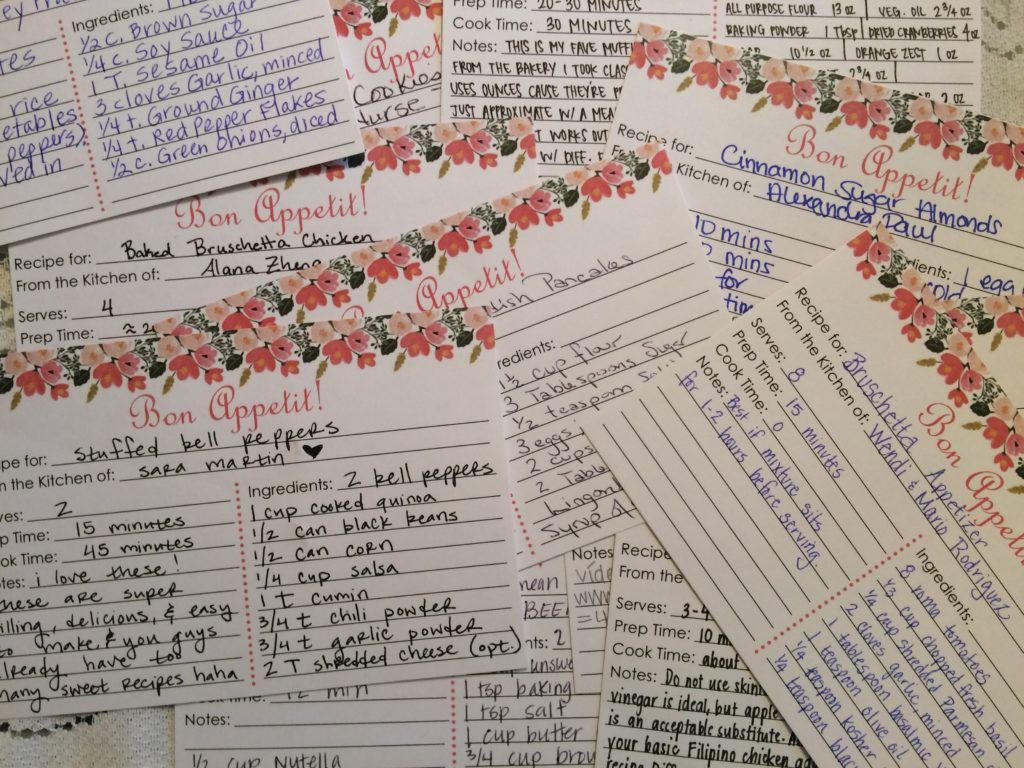 Ingredients:
1/2 c. Brown Sugar
1/4 c. Soy Sauce
1 T. Sesame Oil
3 cloves Garlic, minced
1/4 t. Ground Ginger
1/4 t. Red Pepper Flakes
1/2 c. Green Onions, diced
rice
Cookies
Prep Time: 20-30 MINUTES
Cook Time: 30 MINUTES
Notes: THIS IS MY FAVE
FROM THE BAKERY I TOOK
USES OUNCES CAUSE THEY'RE
JUST APPROXIMATE W/ A
WORKS
W/ DIFF.
ALL PURPOSE FLOUR 13 OZ
VEG. OIL 2 3/4 OZ
BAKING POWDER 1 TBSP
DRIED CRANBERRIES 4 OZ
10 1/2 OZ
ORANGE ZEST 1 OZ
2 3/4 OZ
2 OZ
Bon Appetit!
Recipe for: Cinnamon Sugar Almonds
Kitchen of: Alexandra Paul
10 mins
mins
for
1 egg
Bon Appetit!
Recipe for: Baked Bruschetta Chicken
From the Kitchen of: Alana
Serves: 4
Prep Time:
Appetit!
Pancakes
1 1/3 cup flour
3 Tablespoons Sugar
1/2 teaspoon
3 eggs
2 cups
2
Syrup
Bon Appetit!
for: stuffed bell peppers
the Kitchen of: sara martin ♥
2
15 minutes
Time: 45 minutes
i love these!
these are super
filling, delicious, & easy
to make, & you guys
already have too
many sweet recipes haha
Ingredients: 2 bell peppers
1 cup cooked quinoa
1/2 can black beans
1/2 can corn
1/4 cup salsa
1 t cumin
3/4 t chili powder
3/4 t garlic powder
2 T shredded cheese (opt.)
Bon
Recipe for: Bruschetta Appetizer
From the Kitchen of: Wendi & Mario Rodriguez
Serves: 8
Prep Time: 15 minutes
Cook Time: 0
Notes: Best if mixture sits
for 1-2 hours before serving.
Ingredients:
8 roma tomatoes
1/3 cup chopped fresh basil
1/4 cup shredded Parmesan
2 cloves garlic, minced
1 tablespoon balsamic
1 teaspoon olive oil
1/4 teaspoon kosher
1/4 teaspoon
12 min
Notes:
1/2 cup Nutella
1 tsp baking
1 tsp salt
1 cup butter
3/4 cup
Notes
Recipe
From the
Serves: 3-4
Prep Time:
Cook Time: about
Notes: Do not use
vinegar is ideal, but
is an acceptable substitute.
your basic Filipino chicken